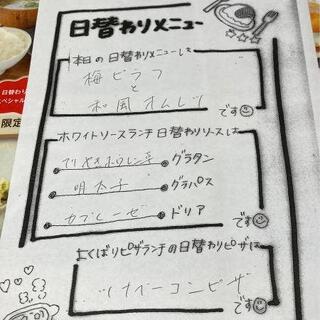 日替わりメニュー
本日の日替わりメニューは
梅ピラフ
と
和風オムレツ
です
ホワイトソースランチ日替わりソースは
グラタン
明太子 グラパス
カプレーゼ ドリア
です
よくばりピザランチの日替わりピザは
ツナベーコンピザ
です
日替わり
限定